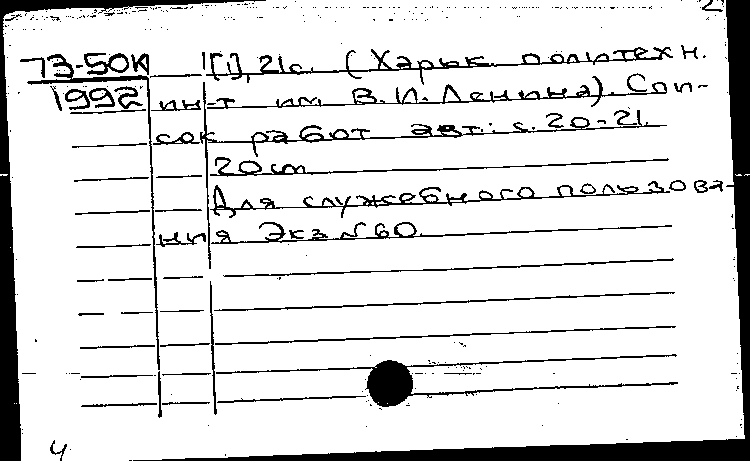 2
73-50К [1], 21 с. (Харьк. политехн.
1992 ин-т им. В.И.Ленина). Спи-
сок работ авт.: с. 20-21.
20 cm
Для служебного пользова-
ния Экз N 60.
4